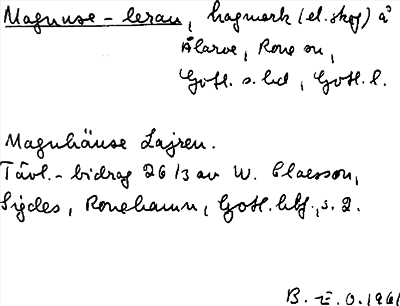 Magnuse-lerau, hagmark (el. skog) å
Älarve, Rone sn,
Gotl. s. hd, Gotl. l.
Magnhäuse Lajren.
Tävl.-bidrag 26/3 av W. Claesson,
Sigdes, Ronehamn, Gotl. hbf., s. 2.
B. E. O. 1961